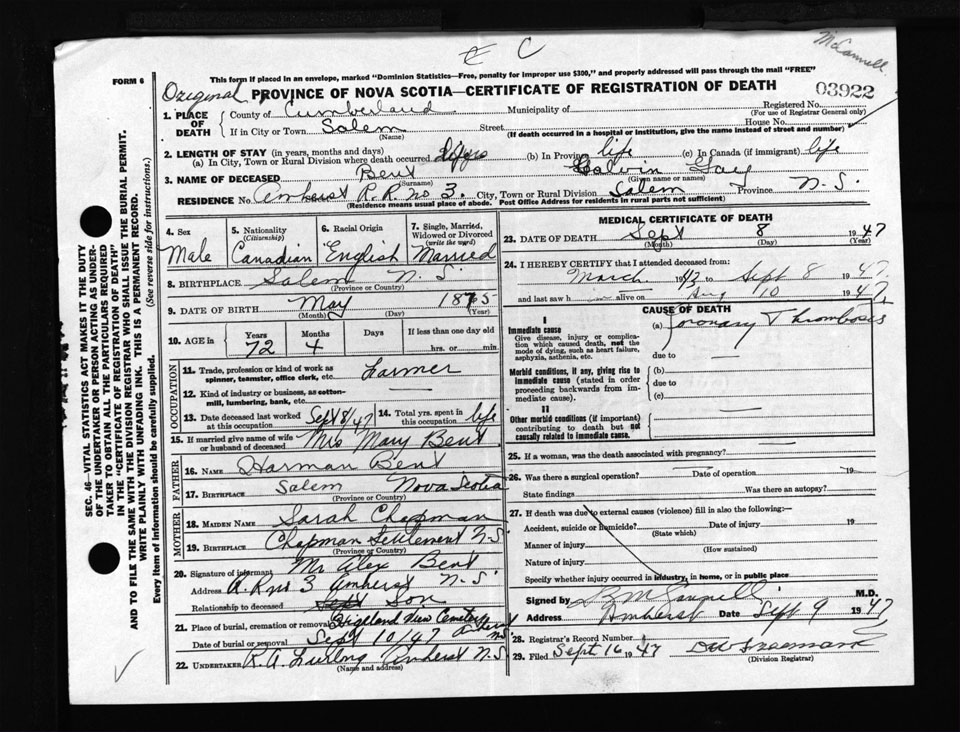 E C
McDonnell
FORM 6
This form if placed in an envelope, marked "Dominion Statistics—Free, penalty for improper use $300," and properly addressed will pass through the mail "FREE"
Original
PROVINCE OF NOVA SCOTIA—CERTIFICATE OF REGISTRATION OF DEATH
03922
1. PLACE OF DEATH
County of Cumberland Municipality of Registered No.
(For use of Registrar General only)
If in City or Town Salem Street House No.
(Name) (If death occurred in a hospital or institution, give the name instead of street and number)
2. LENGTH OF STAY (in years, months and days)
(a) In City, Town or Rural Division where death occurred (b) In Province life (c) In Canada (if immigrant) life
3. NAME OF DECEASED Bent Calvin Gay
(Surname) (Given name or names)
RESIDENCE No. Amherst R.R. no 3. City, Town or Rural Division Salem Province N.S.
(Residence means usual place of abode. Post Office Address for residents in rural parts not sufficient)
4. Sex
Male
5. Nationality
(Citizenship)
Canadian
6. Racial Origin
English
7. Single, Married, Widowed or Divorced
(write the word)
Married
8. BIRTHPLACE Salem N.S.
(Province or Country)
9. DATE OF BIRTH May 1875
(Month) (Day) (Year)
10. AGE in
Years Months Days If less than one day old
72 4 hrs. or min.
OCCUPATION
11. Trade, profession or kind of work as spinner, teamster, office clerk, etc. Farmer
12. Kind of industry or business, as cotton-mill, lumbering, bank, etc.
13. Date deceased last worked at this occupation Sept 8/47
14. Total yrs. spent in this occupation life
15. If married give name of wife or husband of deceased Mrs Mary Bent
FATHER
16. NAME Harman Bent
17. BIRTHPLACE Salem Nova Scotia
(Province or Country)
MOTHER
18. MAIDEN NAME Sarah Chapman
19. BIRTHPLACE Chapman Settlement N.S.
(Province or Country)
20. Signature of informant Mr Alex Bent
Address R.R no 3 Amherst N.S.
Relationship to deceased Sept Son
21. Place of burial, cremation or removal Highland View Cemetery Amherst N.S.
Date of burial or removal Sept 10/47
22. UNDERTAKER R.A. Furlong Amherst N.S.
(Name and address)
MEDICAL CERTIFICATE OF DEATH
23. DATE OF DEATH Sept 8 1947
(Month) (Day) (Year)
24. I HEREBY CERTIFY that I attended deceased from:
March 1943 to Sept 8 1947
and last saw h alive on Aug 10 1947.
CAUSE OF DEATH
I
Immediate cause
Give disease, injury or complication which caused death, not the mode of dying, such as heart failure, asphyxia, asthenia, etc.
(a) Coronary Thrombosis
due to
Morbid conditions, if any, giving rise to immediate cause (stated in order proceeding backwards from immediate cause).
(b)
due to
(c)
II
Other morbid conditions (if important) contributing to death but not causally related to immediate cause.
25. If a woman, was the death associated with pregnancy?
26. Was there a surgical operation? Date of operation 19
State findings Was there an autopsy?
27. If death was due to external causes (violence) fill in also the following:—
Accident, suicide or homicide? Date of injury 19
(State which)
Manner of injury
(How sustained)
Nature of injury
Specify whether injury occurred in industry, in home, or in public place
Signed by M.D.
Address Amherst Date Sept 9 1947
28. Registrar's Record Number
29. Filed Sept 16 1947
(Division Registrar)
SEC. 46—VITAL STATISTICS ACT MAKES IT THE DUTY
OF THE UNDERTAKER OR PERSON ACTING AS UNDER-
TAKER TO OBTAIN ALL THE PARTICULARS REQUIRED
IN THE "CERTIFICATE OF REGISTRATION OF DEATH"
AND TO FILE THE SAME WITH THE DIVISION REGISTRAR WHO SHALL ISSUE THE BURIAL PERMIT.
WRITE PLAINLY WITH UNFADING INK. THIS IS A PERMANENT RECORD.
Every item of information should be carefully supplied. (See reverse side for instructions.)